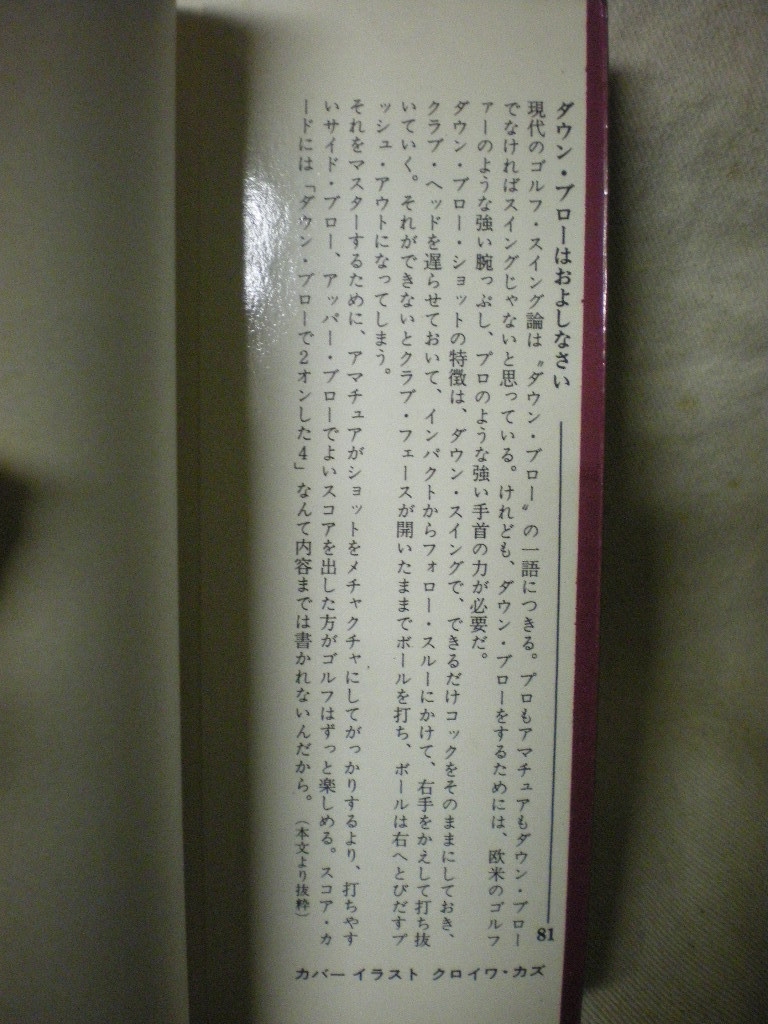 ダウン・ブローはおよしなさい
81
現代のゴルフ・スイング論は〝ダウン・ブロー〟の一語につきる。プロもアマチュアもダウン・ブロー
でなければスイングじゃないと思っている。けれども、ダウン・ブローをするためには、欧米のゴルフ
ァーのような強い腕っぷし、プロのような強い手首の力が必要だ。
ダウン・ブロー・ショットの特徴は、ダウン・スイングで、できるだけコックをそのままにしておき、
クラブ・ヘッドを遅らせておいて、インパクトからフォロー・スルーにかけて、右手をかえして打ち抜
いていく。それができないとクラブ・フェースが開いたままでボールを打ち、ボールは右へとびだすプ
ッシュ・アウトになってしまう。
それをマスターするために、アマチュアがショットをメチャクチャにしてがっかりするより、打ちやす
いサイド・ブロー、アッパー・ブローでよいスコアを出した方がゴルフはずっと楽しめる。スコア・カ
ードには「ダウン・ブローで2オンした4」なんて内容までは書かれないんだから。（本文より抜粋）
カバー イラスト クロイワ・カズ